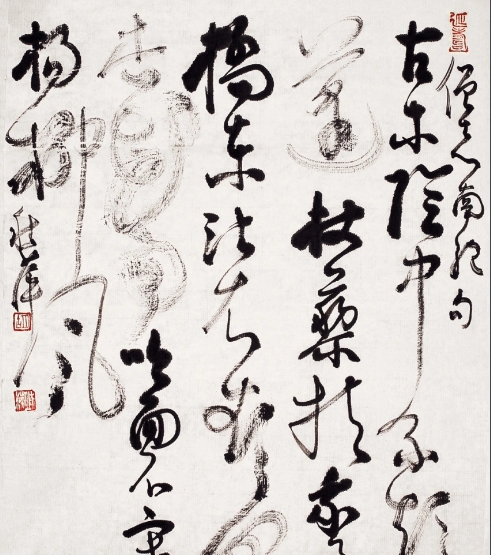 僧志南絕句
古木陰中系短
篷杖藜扶我
橋東沾衣欲
杏花雨吹面不寒
楊柳風